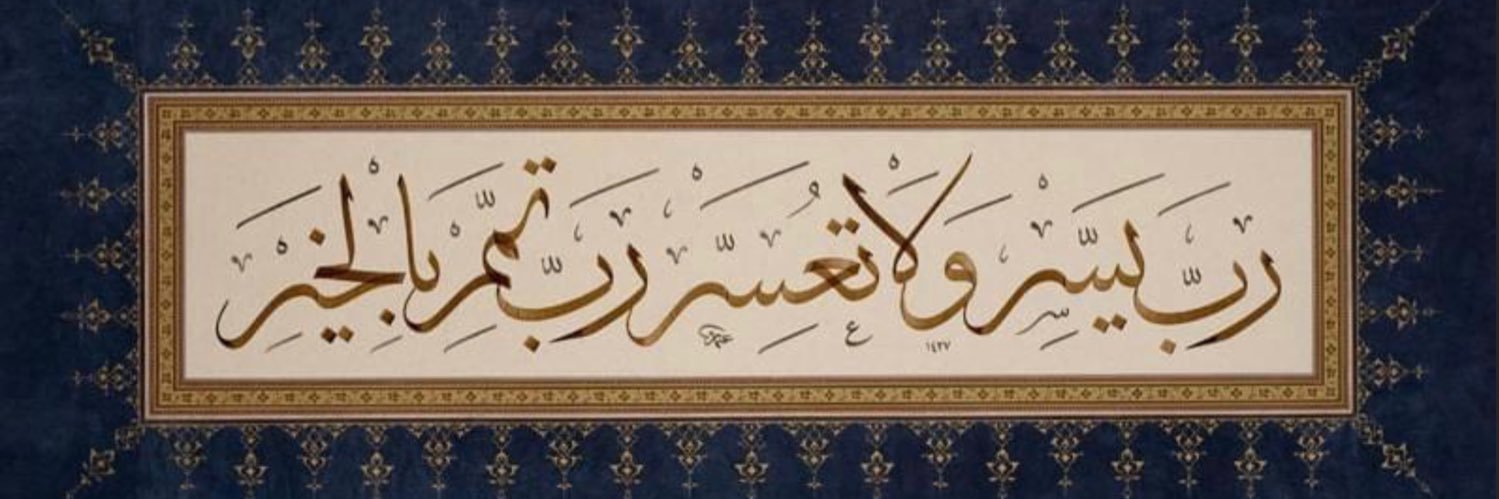 رَبِّ يَسِّرْ وَلَا تُعَسِّرْ رَبِّ تَمِّمْ بِالْخَيْرِ
١٤٣٧